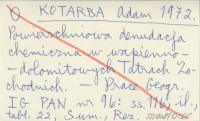 KOTARBA Adam 1972.
Powierzchniowa denudacja
chemiczna w wapienno-
-dolomitowych Tatrach Za-
chodnich. - Prace Geogr.
IG PAN nr 96: ss. 116, il.,
tabl. 22, Sum., Rez.